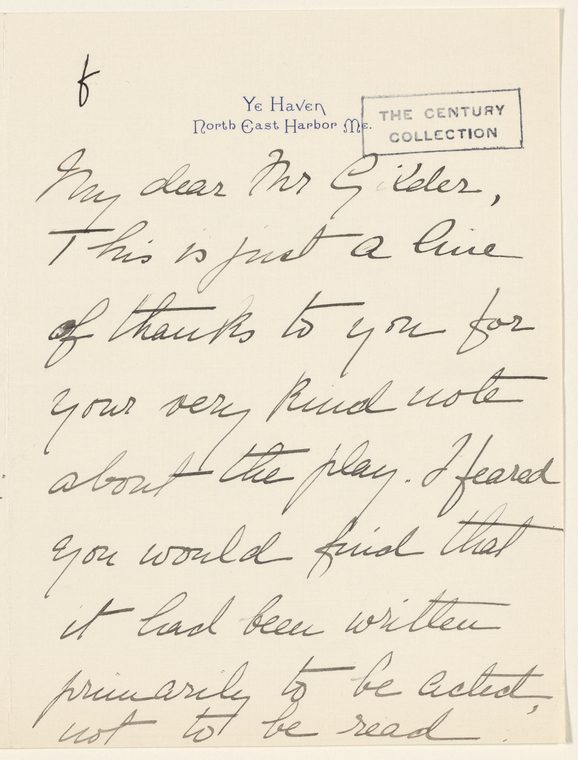 f
Ye Haven
North East Harbor Me.
THE CENTURY
COLLECTION
My dear Mr Gilder,
This is just a line
of thanks to you for
your very kind note
about the play. I feared
you would find that
it had been written
primarily to be acted,
not to be read.